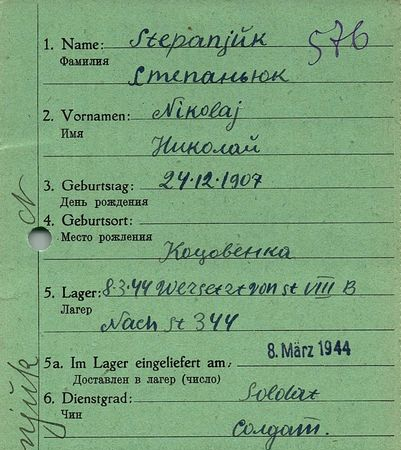 1. Name: Stepanjuk 576
Фамилия
Степаньюк
2. Vornamen: Nikolaj
Имя
Николай
3. Geburtstag: 24.12.1907
День рождения
4. Geburtsort:
Место рождения
Коцовенка
5. Lager: 8.3.44 Wersetzt von St VIII B
Лагер
Nach St 344
5a. Im Lager eingeliefert am: 8. März 1944
Доставлен в лагер (число)
6. Dienstgrad: Soldat
Чин
Солдат.
N
njuk